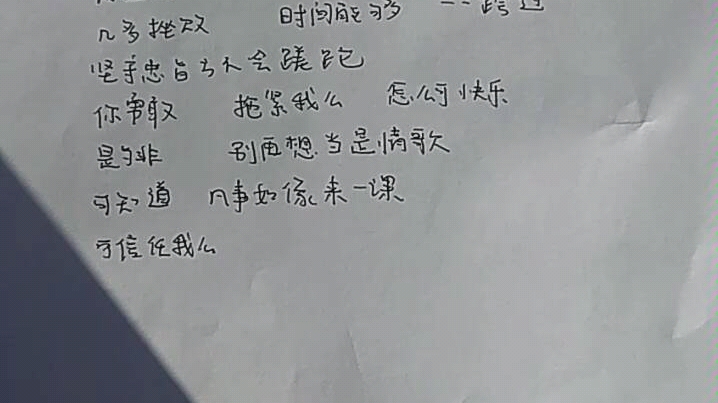 几多挫败 时间能够 一一跨过
坚守忠旨亦不会蹉跎
你争取 抱紧我么 怎么可快乐
是与非 别再想当是情歌
可知道 凡事如像来一课
可信任我么